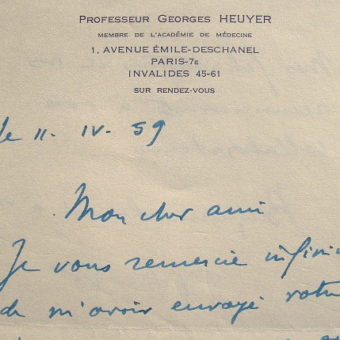 PROFESSEUR GEORGES HEUYER
MEMBRE DE L'ACADÉMIE DE MÉDECINE
1, AVENUE ÉMILE-DESCHANEL
PARIS-7e
INVALIDES 45-61
SUR RENDEZ-VOUS
le 11. IV. 59
Mon cher ami
Je vous remercie infini
de m'avoir envoyé votre